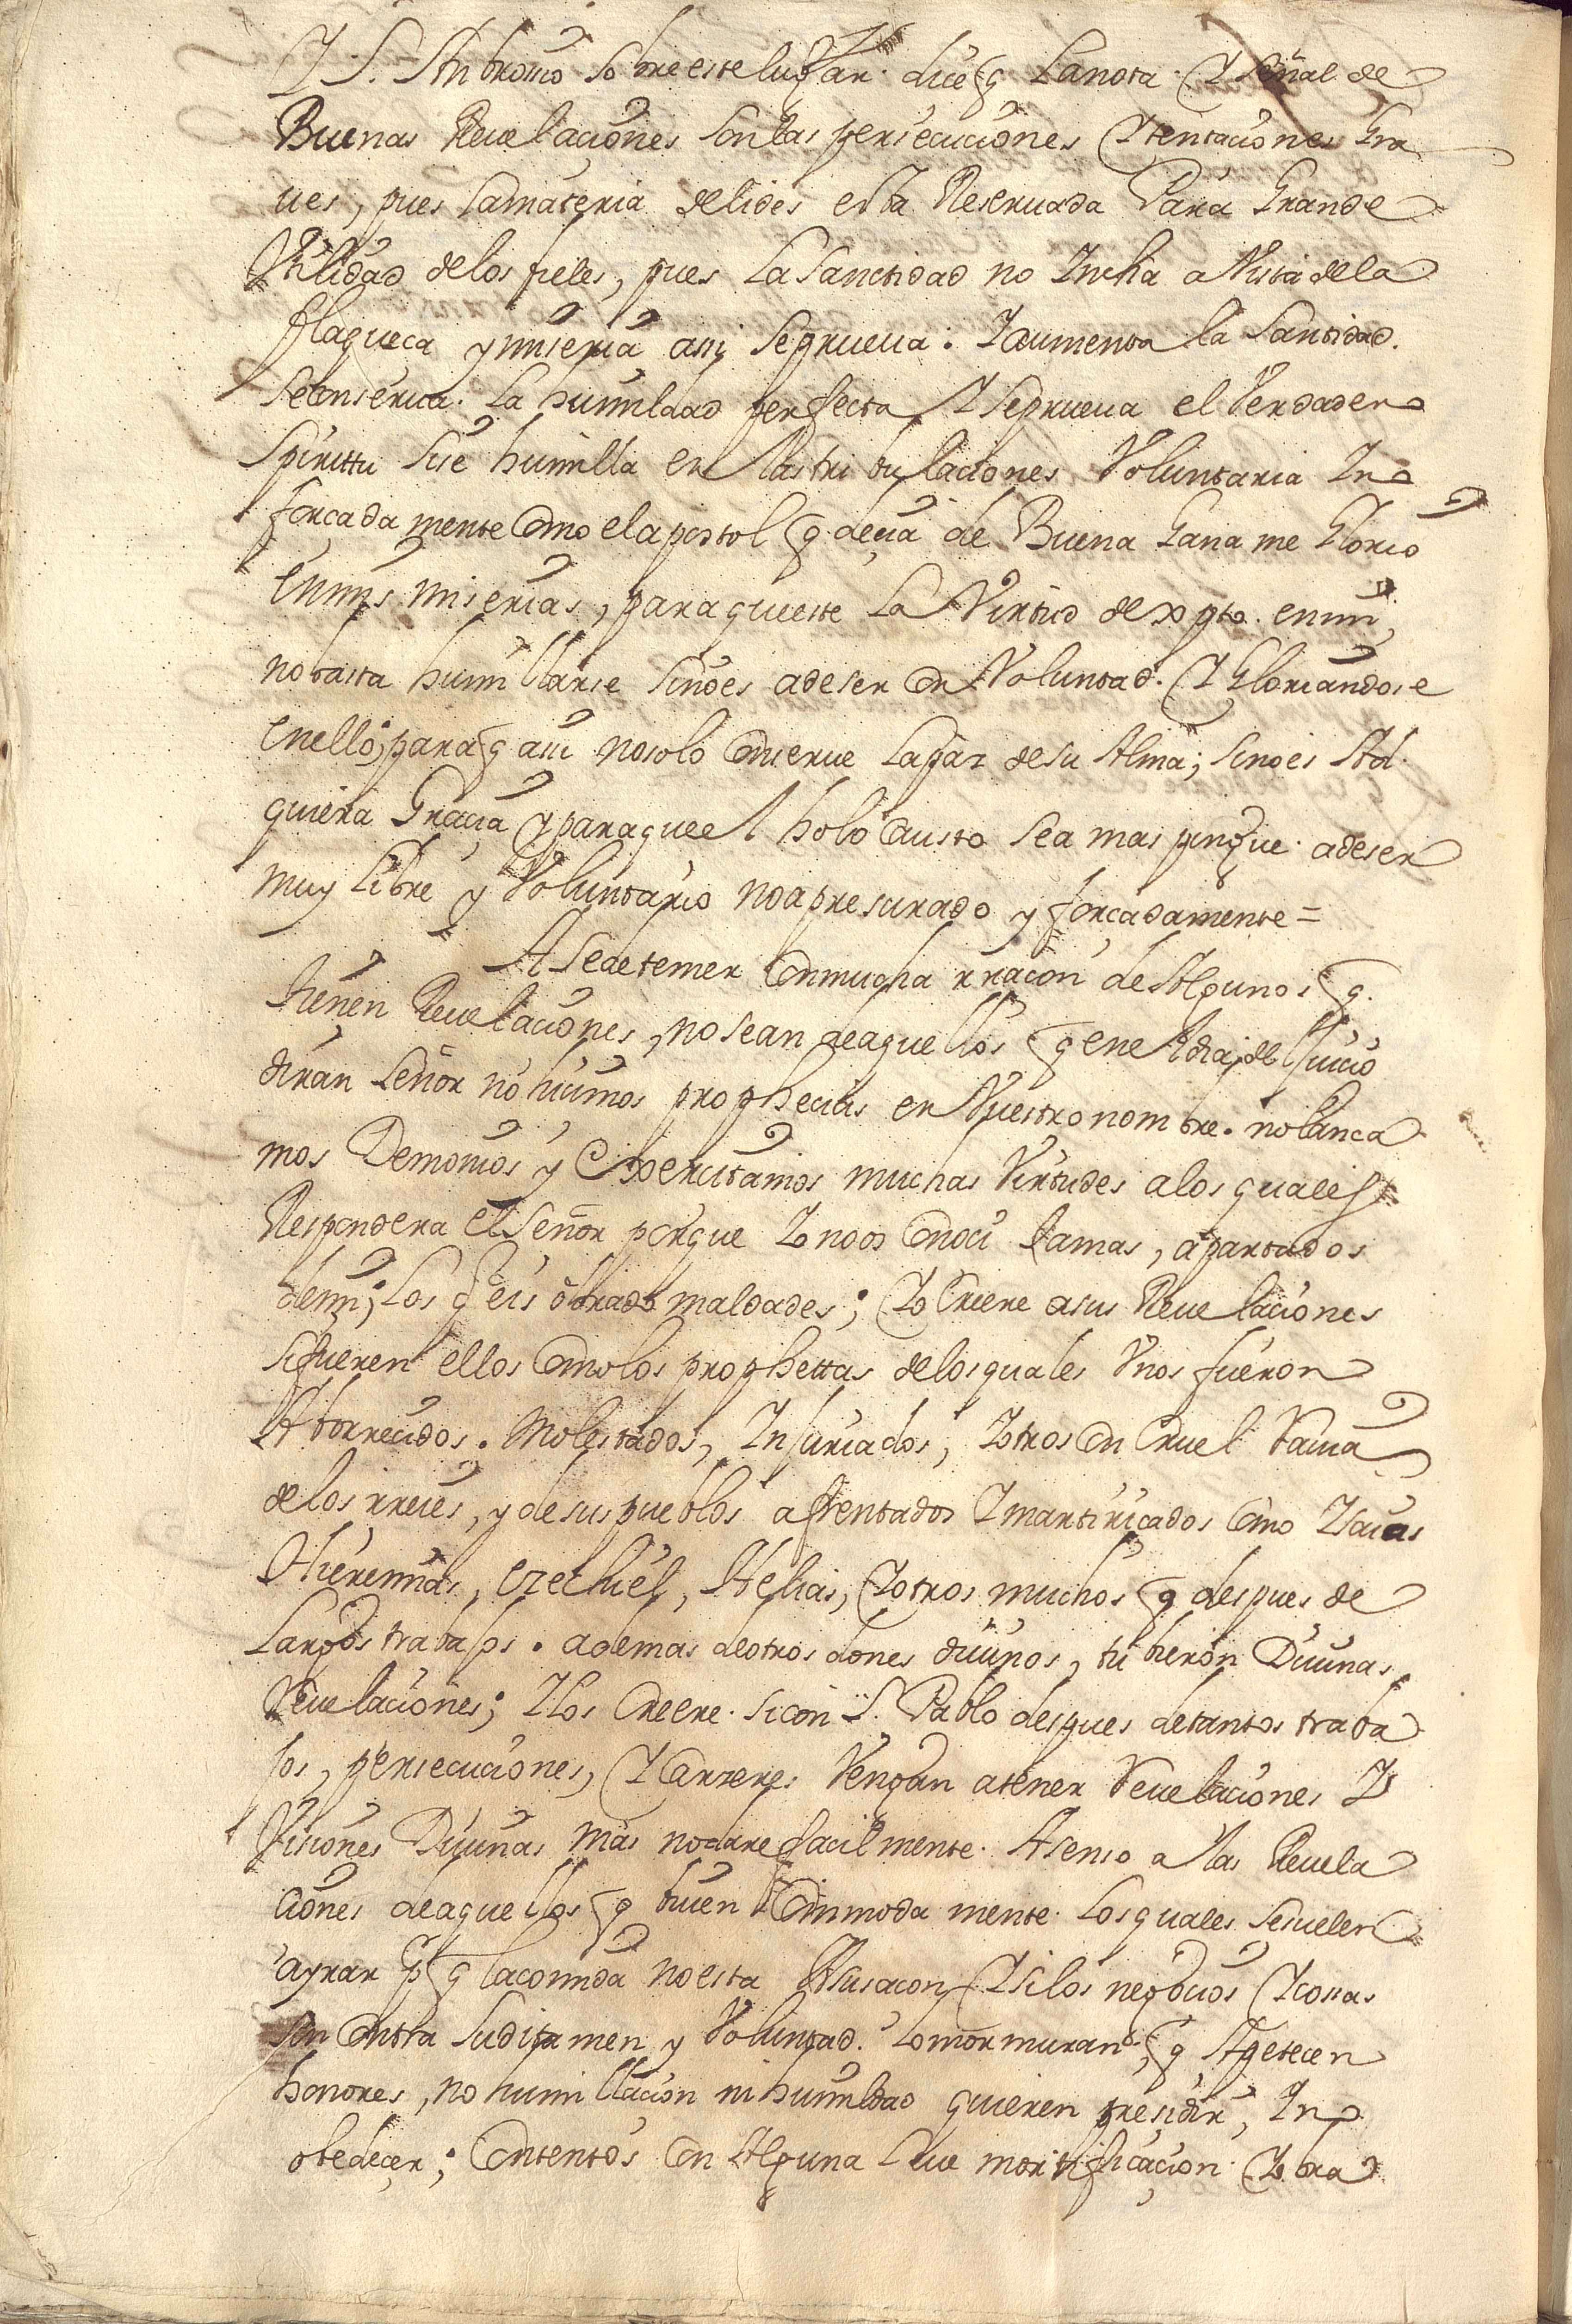 Y S. Anbrosio sobre este lugar. dice q la nota. Y señal de
Buenas Reuelaciones son las persecuciones Y tentaciones Gra
ues, pues la materia de lides esta Reseruada Para Grande
Vtilidad de los fieles, pues La Sanctidad no Incha a Vista de la
flaqueça y miseria assi se prueua. Y aumenta la Santidad.
se conserua. La humildad perfecta, Y se prueua el Verdadero
Spirittu si se humilla en las tribulaciones Voluntaria Y no
forçadamente como el apostol q deçia de Buena Gana me Glorio
en mis miserias, para que este La Virtud de xpto. en mi,
no basta humillarse sino es a de ser con Voluntad. Y Gloriandose
en ello; para q assi no solo conserue la paz de su Alma; sino es Ad.
quiera Graçia y para que el holocausto sea mas pingue. a de ser
muy Libre y Voluntario no apresurado y forçadamente =
A se de temer con mucha rraçon de Algunos q.
tienen Reuelaciones, no sean de aquellos q en el dia del Juicio
diran señor no hicimos prophecias en Vuestro nombre. no lança
mos Demonios y Exercitamos muchas Virtudes a los quales
Respondera el Señor porque Yo no os conoci Jamas, apartados
de mi; los q eis obrado maldades; Yo Creere a sus Reuelaciones
si fueren ellos como los prophettas de los quales Vnos fueron
Aborrecidos. Molestados, Injuriados, Y otros con Cruel Sauia
de los rreies, y de sus pueblos afrentados Y martiriçados como Ysaias
Hieremias, Ezechiel, Helias, Y otros muchos q despues de
Largos trabajos. ademas de otros dones diuinos, tubieron Diuinas
Reuelaciones; Y los Creere. si con S. Pablo despues de tantos traba
jos, persecuciones, Y Carzeres Vengan a tener Reuelaciones Y
Visiones Diuinas mas no dare facilmente. Asenso a las Reuela
ciones de aquellos q biuen Commodamente. los quales se suelen
ayrar p q la comida no esta A su saçon Y si los negocios Y cosas
son contra su ditamen y Voluntad. lo mormuran, q Apetecen
honores, no humillacion ni humildad quieren presidir, Y no
obedeçer; Contentos con Alguna Leue mortificaçion. Y ora